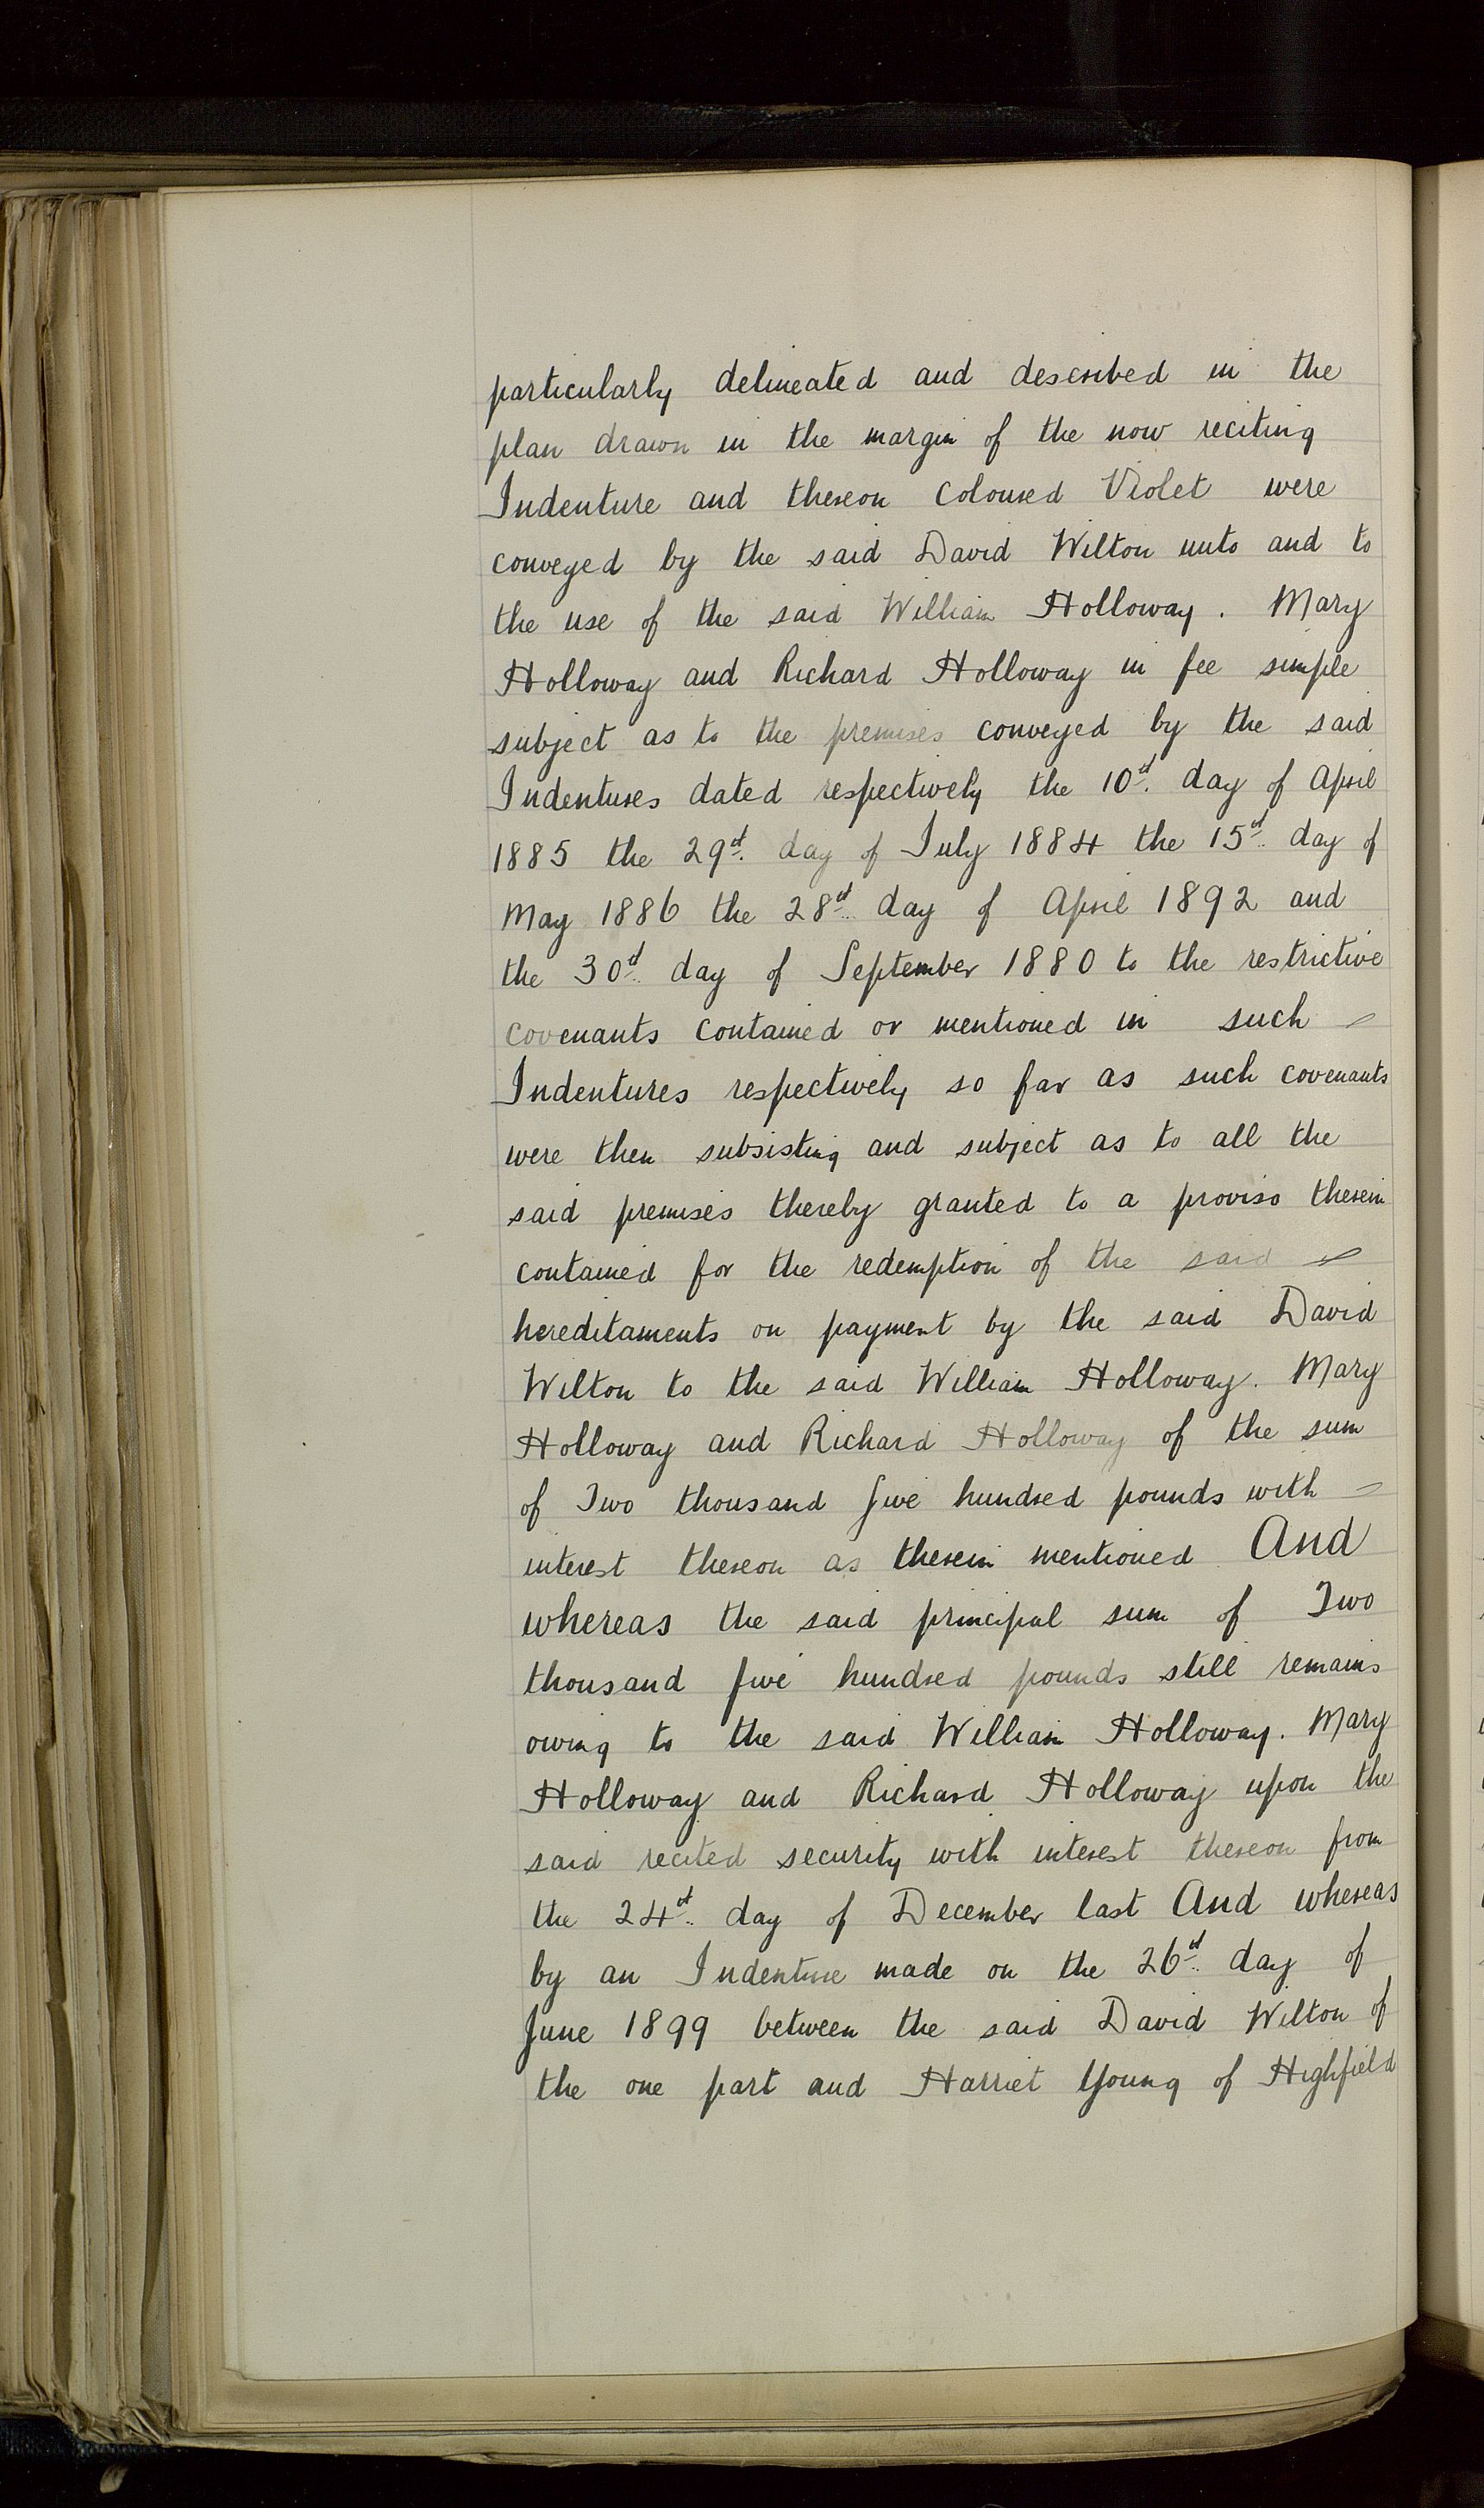 particularly delineated and described in the
plan drawn in the margin of the now reciting
Indenture and thereon coloured Violet were
conveyed by the said David Wilton unto and to
the use of the said William Holloway. Mary
Holloway and Richard Holloway in fee simple
subject as to the premises conveyed by the said
Indentures dated respectively the 10th. day of April
1885 the 29th. day of July 1884 the 15th. day of
May 1886 the 28th. day of April 1892 and
the 30th. day of September 1880 to the restrictive
covenants contained or mentioned in such -
Indentures respectively so far as such covenants
were then subsisting and subject as to all the
said premises thereby granted to a proviso therein
contained for the redemption of the said -
hereditaments on payment by the said David
Wilton to the said William Holloway. Mary
Holloway and Richard Holloway of the sum
of Two thousand five hundred pounds with -
interest thereon as therein mentioned And
whereas the said principal sum of Two
thousand five hundred pounds still remains
owing to the said William Holloway. Mary
Holloway and Richard Holloway upon the
said recited security with interest thereon from
the 24th. day of December last And whereas
by an Indenture made on the 26th. day of
June 1899 between the said David Wilton of
the one part and Harriet Young of Highfield